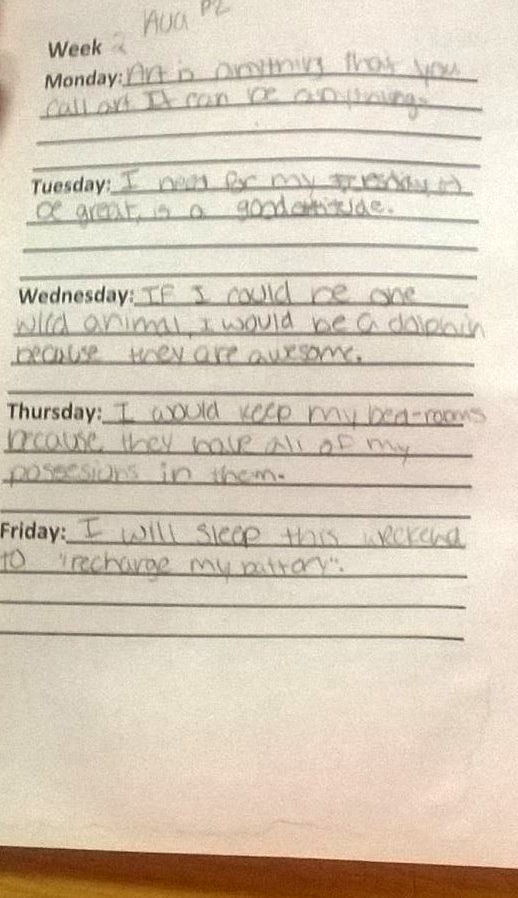 AUG P2
Week 2
Monday: Art is anything that you
call art It can be anything.
Tuesday: I need for my tuesday to
be great, is a good attitude.
Wednesday: IF I could be one
wild animal, I would be a dolphin
because they are awesome.
Thursday: I would keep my bed-rooms
because they have all of my
possesions in them.
Friday: I will sleep this weekend
to "recharge my battory".